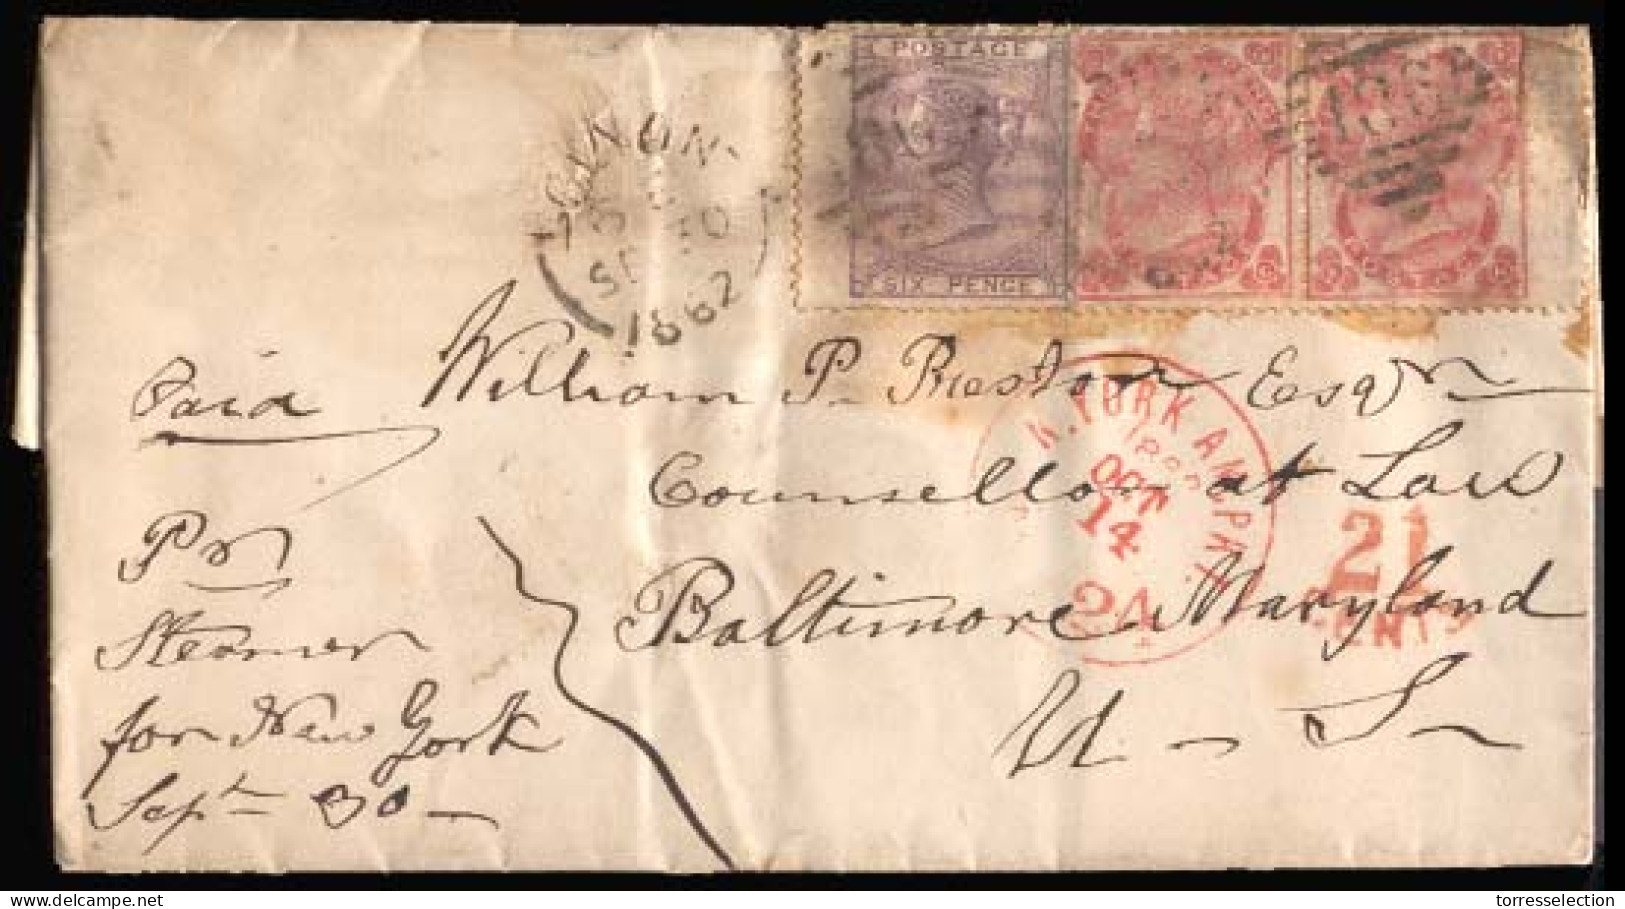 POSTAGE
SIX PENCE
LONDON
SP 30
1862
Paid
William P. Preston Esqr
Counsellor at Laws
Baltimore Maryland
U - S -
N. YORK AM. PKT.
OCT
14
24
21
CENTS
Pr
Steamer
for New York
Sept 30
torresselection